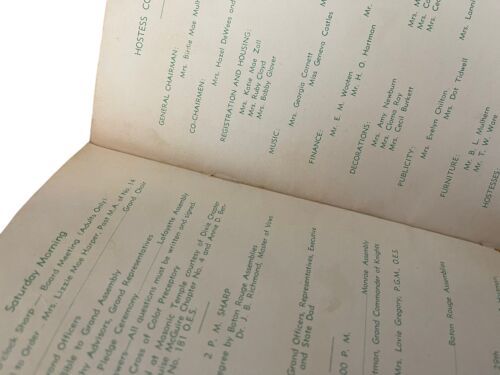 HOSTESS CO
GENERAL CHAIRMAN:
Mrs. Birdie Mae Mulh
CO-CHAIRMEN:
Mrs. Hazel DeWees and
REGISTRATION AND HOUSING:
Mrs. Katie Mae Zoll
Mrs. Ruby Cloyd
Mrs. Bobby Glover
MUSIC:
Mrs. Georgia Cornett
Miss Geneva Castles
FINANCE:
Mr. E. M. Wooten
Mr. H. O. Hartman
DECORATIONS:
Mrs. Amy Newburn
Mrs. Cloma Ray
Mrs. Cecil Burkett
PUBLICITY:
Mrs. Evelyn Chilton
Mrs. Dot Tidwell
FURNITURE:
Mr. B. L. Mulhern
Mr. T. W. Ware
HOSTESSES
Mrs. Lanni
Saturday Morning
o'clock Sharp — Board Meeting (Adults Only)
to Order — Mrs. Lizzie Mae Harper, Past M.A. of No. 14
Grand Choir
Grand Officers
ible to Grand Assembly
y Advisors, Grand Representatives
ledge Ceremony — Lafayette Assembly
wers—All questions must be written and signed.
Cross of Color Preceptory
at Masonic Temple courtesy of Dixie Chapter
uise McGuire Chapter No. 4 and Annie D. Ben-
No. 181 O.E.S.
2 P. M. SHARP
egree by Baton Rouge Assemblies
Dr. J. B. Richmond, Master of Vows
Grand Officers, Representatives, Executive
and State Dad
00 P. M.
Monroe Assembly
tman, Grand Commander of Knights
Mrs. Lavie Gregory, P.G.M., O.E.S.
Baton Rouge Assemblies